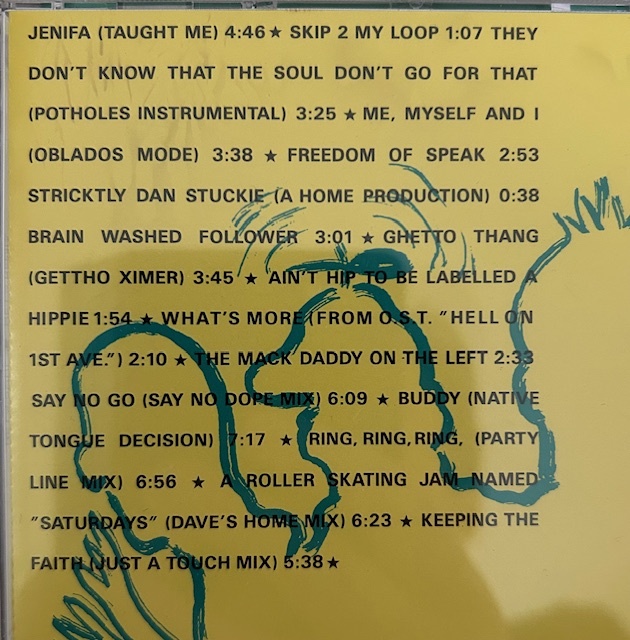 JENIFA (TAUGHT ME) 4:46★ SKIP 2 MY LOOP 1:07 THEY
DON'T KNOW THAT THE SOUL DON'T GO FOR THAT
(POTHOLES INSTRUMENTAL) 3:25 ★ ME, MYSELF AND I
(OBLADOS MODE) 3:38 ★ FREEDOM OF SPEAK 2:53
STRICKTLY DAN STUCKIE (A HOME PRODUCTION) 0:38
BRAIN WASHED FOLLOWER 3:01 ★ GHETTO THANG
(GETTHO XIMER) 3:45 ★ AIN'T HIP TO BE LABELLED A
HIPPIE 1:54 ★ WHAT'S MORE (FROM O.S.T. "HELL ON
1ST AVE.") 2:10 ★ THE MACK DADDY ON THE LEFT 2:33
SAY NO GO (SAY NO DOPE MIX) 6:09 ★ BUDDY (NATIVE
TONGUE DECISION) 7:17 ★ RING, RING, RING, (PARTY
LINE MIX) 6:56 ★ A ROLLER SKATING JAM NAMED
"SATURDAYS" (DAVE'S HOME MIX) 6:23 ★ KEEPING THE
FAITH (JUST A TOUCH MIX) 5:38★